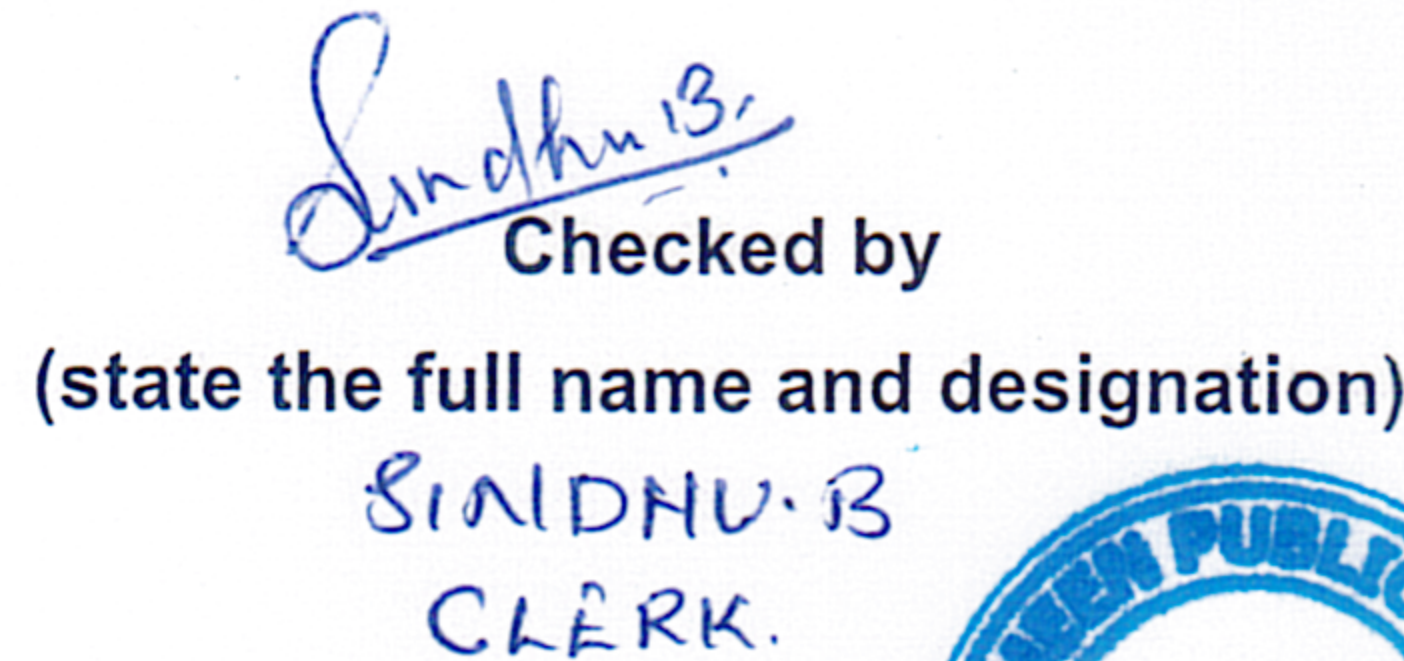 Sindhu B.
Checked by
(state the full name and designation)
SINDHU. B
CLERK.
PUBLIC